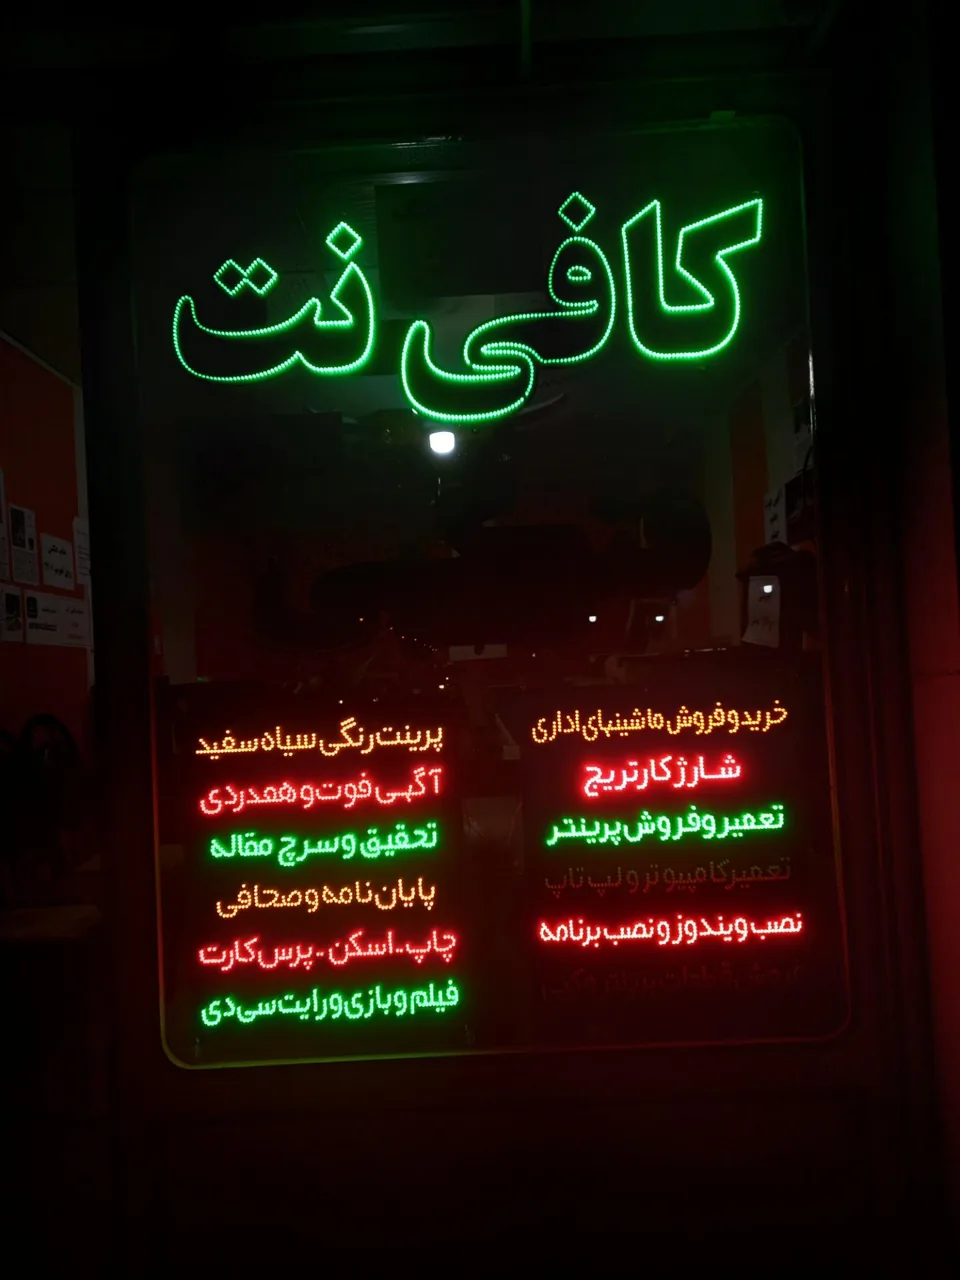 کافی نت
خرید و فروش ماشینهای اداری
شارژ کارتریج
تعمیر و فروش پرینتر
تعمیر کامپیوتر و لپ تاپ
نصب ویندوز و نصب برنامه
پرینت رنگی سیاه سفید
آگهی فوت و همدردی
تحقیق و سرچ مقاله
پایان نامه و صحافی
چاپ - اسکن - پرس کارت
فیلم و بازی و رایت سی دی